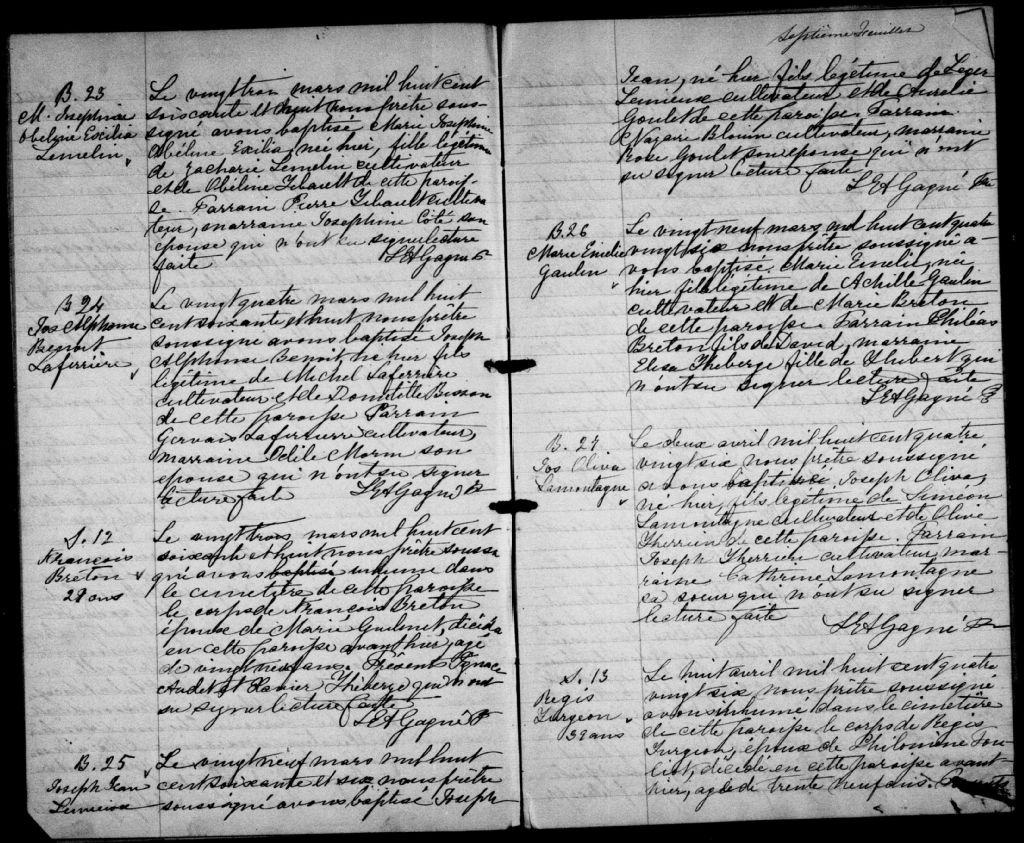 B. 23
M. Josephine
Obeline Exilia
Lemelin
Le vingttrois mars mil huit cent
soixante et huit nous prêtre sous-
signé avons baptisé Marie Josephine
Obéline Exilia, née hier, fille légitime
de Zacharie Lemelin cultivateur
et de Obéline Tibault de cette parois-
se. Parrain Pierre Tibault cultiva
teur, marraine Josephine Côté son
épouse qui n'ont su signer lecture
faite LEAGagné Ptr
B 24
Jos Alphonse
Benoit
Laferrière
Le vingt quatre mars mil huit
cent soixante et huit nous prêtre
soussigné avons baptisé Joseph
Alphonse Benoit, né hier fils
légitime de Michel Laferrière
cultivateur et de Domitille Bisson
de cette paroisse Parrain
Gervais Laferriere cultivateur,
marraine Odile Morin son
épouse qui n'ont su signer
lecture faite LEAGagné Ptr
S. 12
François
Breton
29 ans
Le vingt trois mars mil huit cent
soixante et huit nous prêtre soussi
gné avons baptisé inhumé dans
le cimetière de cette paroisse
le corps de François Breton
époux de Marie Goulet, décédé
en cette paroisse avant hier, agé
de vingt neuf ans. Présents Ignace
Audet et Xavier Théberge qui n'ont
su signer lecture faite
LEAGagné P
B. 25
Joseph Jean
Lemieux
Le vingt neuf mars mil huit
cent soixante et six nous prêtre
soussigné avons baptisé Joseph
Septième Feuillet
Jean, né hier fils légitime de Léger
Lemieux cultivateur et de Aurelie
Goulet de cette paroisse. Parrain
Nazaire Blouin cultivateur, marraine
Rose Goulet son épouse qui n'ont
su signer lecture faite
LEAGagné Ptr
B. 26
Marie Emelie
Gaulin
Le vingt neuf mars mil huit cent quatre
vingt six nous prêtre soussigné a-
vons baptisé Marie Emelie, née
hier fille légitime de Achille Gaulin
cultivateur et de Marie Breton
de cette paroisse. Parrain Philéas
Breton fils de David, marraine
Elisa Theberge fille de Hubert qui
n'ont su signer lecture faite
LEAGagné P
B. 27
Jos Oliva
Lamontagne
Le deux avril mil huit cent quatre
vingt six nous prêtre soussigné
avons baptisé Joseph Oliva,
né hier, fils légitime de Simeon
Lamontagne cultivateur et de Olive
Therrien de cette paroisse. Parrain
Joseph Therrien cultivateur, mar-
raine Cathrine Lamontagne
sa soeur qui n'ont su signer
lecture faite
LEAGagné Ptr
S. 13
Regis
Turgeon
39 ans
Le huit avril mil huit cent quatre
vingt six nous prêtre soussigné
avons inhumé dans le cimetière
de cette paroisse le corps de Regis
Turgeon, époux de Philomène Fou-
list, décédé en cette paroisse avant
hier, agé de trente neuf ans.